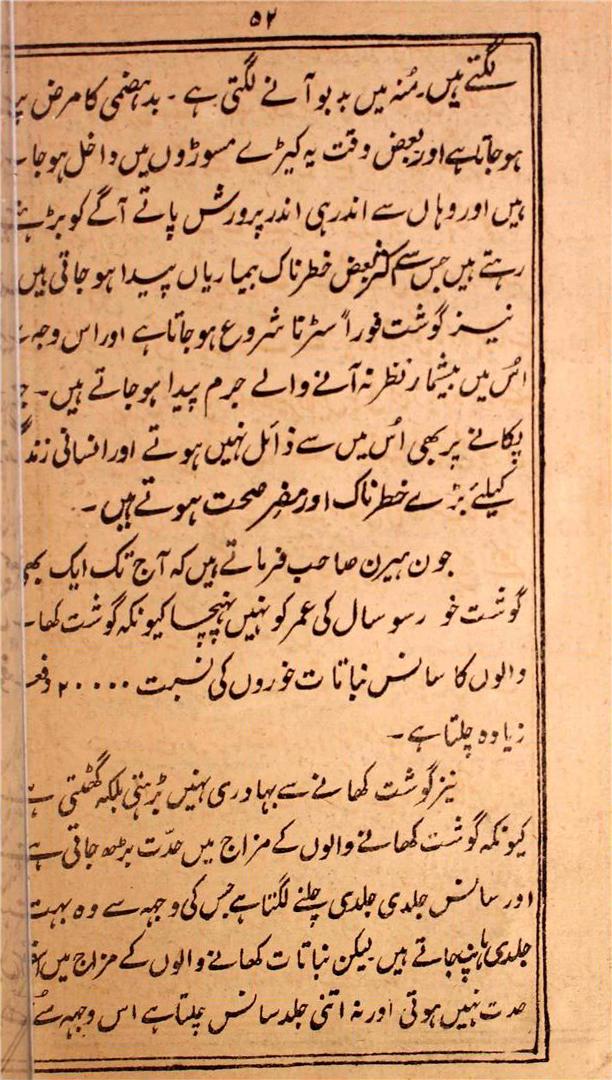 ۵۲
لگتے ہیں۔ مُنہ میں بدبو آنے لگتی ہے۔ بدہضمی کا مرض
ہو جاتا ہے اور بعض وقت یہ کیڑے مسوڑوں میں داخل ہو جا
ہیں اور وہاں سے اندر ہی اندر پرورش پاتے آگے کو بڑہتے
رہتے ہیں جس سے اکثر بعض خطرناک بیماریاں پیدا ہو جاتی ہیں
نیز گوشت فوراً سڑنا شروع ہو جاتا ہے اور اس وجہ
اُس میں بیشمار نظر نہ آنے والے جرم پیدا ہو جاتے ہیں۔
پکانے پر بھی اُس میں سے زائل نہیں ہوتے اور انسانی زندگ
کیلئے بڑے خطرناک اور مضرِ صحت ہوتے ہیں۔
جون ہیرن صاحب فرماتے ہیں کہ آج تک ایک بھی
گوشت خور سو سال کی عمر کو نہیں پہنچا کیونکہ گوشت کھا
والوں کا سانس نباتات خوروں کی نسبت ۲۰۰۰۰ دفعہ
زیادہ چلتا ہے۔
نیز گوشت کھانے سے بہادری نہیں بڑہتی بلکہ گھٹتی ہے
کیونکہ گوشت کھانے والوں کے مزاج میں حدّت بڑھ جاتی ہے
اور سانس جلدی جلدی چلنے لگتا ہے جس کی وجہ سے وہ بہت
جلدی ہانپ جاتے ہیں لیکن نباتات کھانے والوں کے مزاج میں
حدت نہیں ہوتی اور نہ اتنی جلد سانس چلتا ہے اس وجہ سے